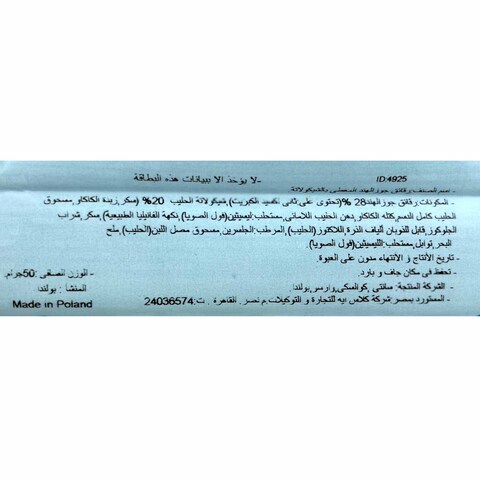 ID:4925 -لا يؤخذ الا ببيانات هذه البطاقة
- اسم الصنف:رقائق جوز الهند المغطى بالشيكولاتة.
- المكونات:رقائق جوزالهند28 %(تحتوى على:ثانى اكسيد الكبريت),شيكولاتة الحليب 20% (سكر,زبدة الكاكاو,مسحوق
الحليب كامل الدسم,كتلة الكاكاو,دهن الحليب اللامائى,مستحلب:ليسيثين(فول الصويا),نكهة الفانيليا الطبيعية),سكر,شراب
الجلوكوز,قابل للذوبان ألياف الذرة,اللاكتوز(الحليب),المرطب:الجلسرين,مسحوق مصل اللبن(الحليب),ملح
البحر,توابل,مستحلب:الليسيثين(فول الصويا).
- تاريخ الأنتاج و الأنتهاء مدون على العبوة.
- تحفظ فى مكان جاف و بارد.
- الوزن الصافى :50جرام.
- الشركة المنتجة: سانتى ,كوالسكى,وارسو,بولندا.
المنشأ : بولندا
- المستورد بمصر:شركة كلاس ايه للتجارة و التوكيلات.م نصر. القاهرة . ت:24036574
Made in Poland